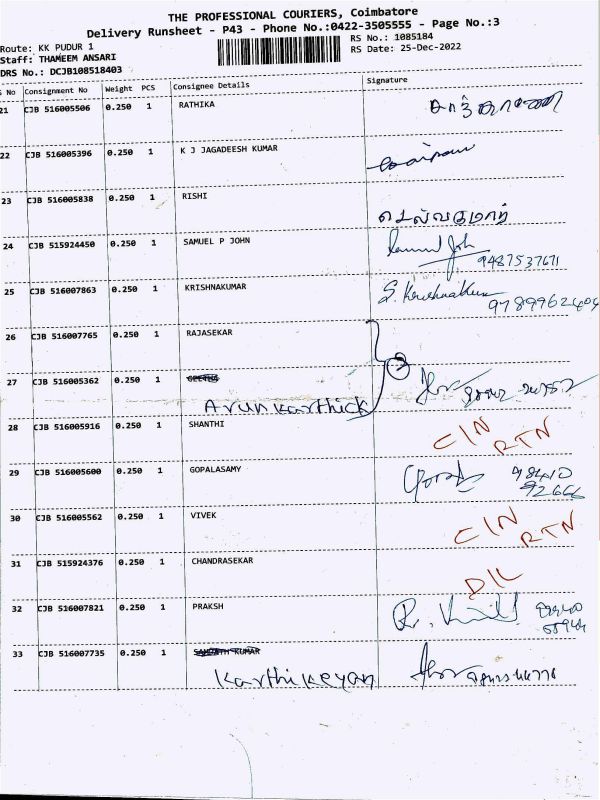 THE PROFESSIONAL COURIERS, Coimbatore
Delivery Runsheet - P43 - Phone No.:0422-3505555 - Page No.:3
Route: KK PUDUR 1
RS No.: 1085184
Staff: THAMEEM ANSARI
RS Date: 25-Dec-2022
DRS No.: DCJB108518403
S No Consignment No Weight PCS Consignee Details Signature
21 CJB 516005506 0.250 1 RATHIKA
22 CJB 516005396 0.250 1 K J JAGADEESH KUMAR
23 CJB 516005838 0.250 1 RISHI செல்வகுமார்
24 CJB 515924450 0.250 1 SAMUEL P JOHN Samuel Joh
9487537671
25 CJB 516007863 0.250 1 KRISHNAKUMAR S. Krishnakum
9789962404
26 CJB 516007765 0.250 1 RAJASEKAR
27 CJB 516005362 0.250 1 GEETHA
Arunkarthick
28 CJB 516005916 0.250 1 SHANTHI C/N RTN
29 CJB 516005600 0.250 1 GOPALASAMY 98410
92666
30 CJB 516005562 0.250 1 VIVEK C/N RTN
31 CJB 515924376 0.250 1 CHANDRASEKAR D/L
32 CJB 516007821 0.250 1 PRAKSH
33 CJB 516007735 0.250 1 SAMPATH KUMAR
Karthikeyan